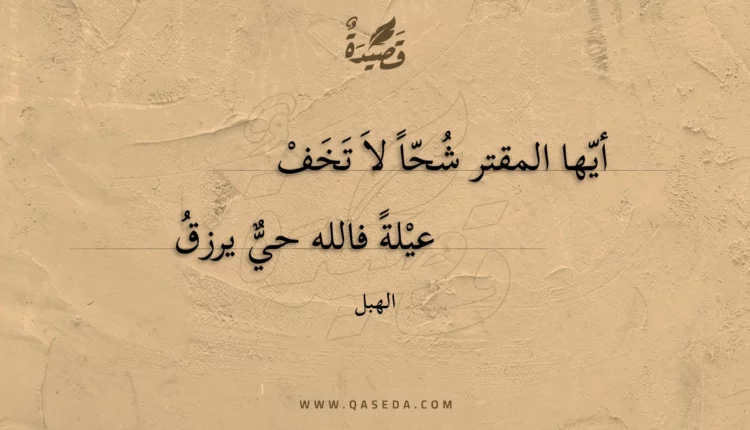 قَصِيْدَةٌ
أيّها المقتر شُحّاً لاَ تَخَفْ
عيْلةً فالله حيٌّ يرزقُ
الهبل
WWW.QASEDA.COM